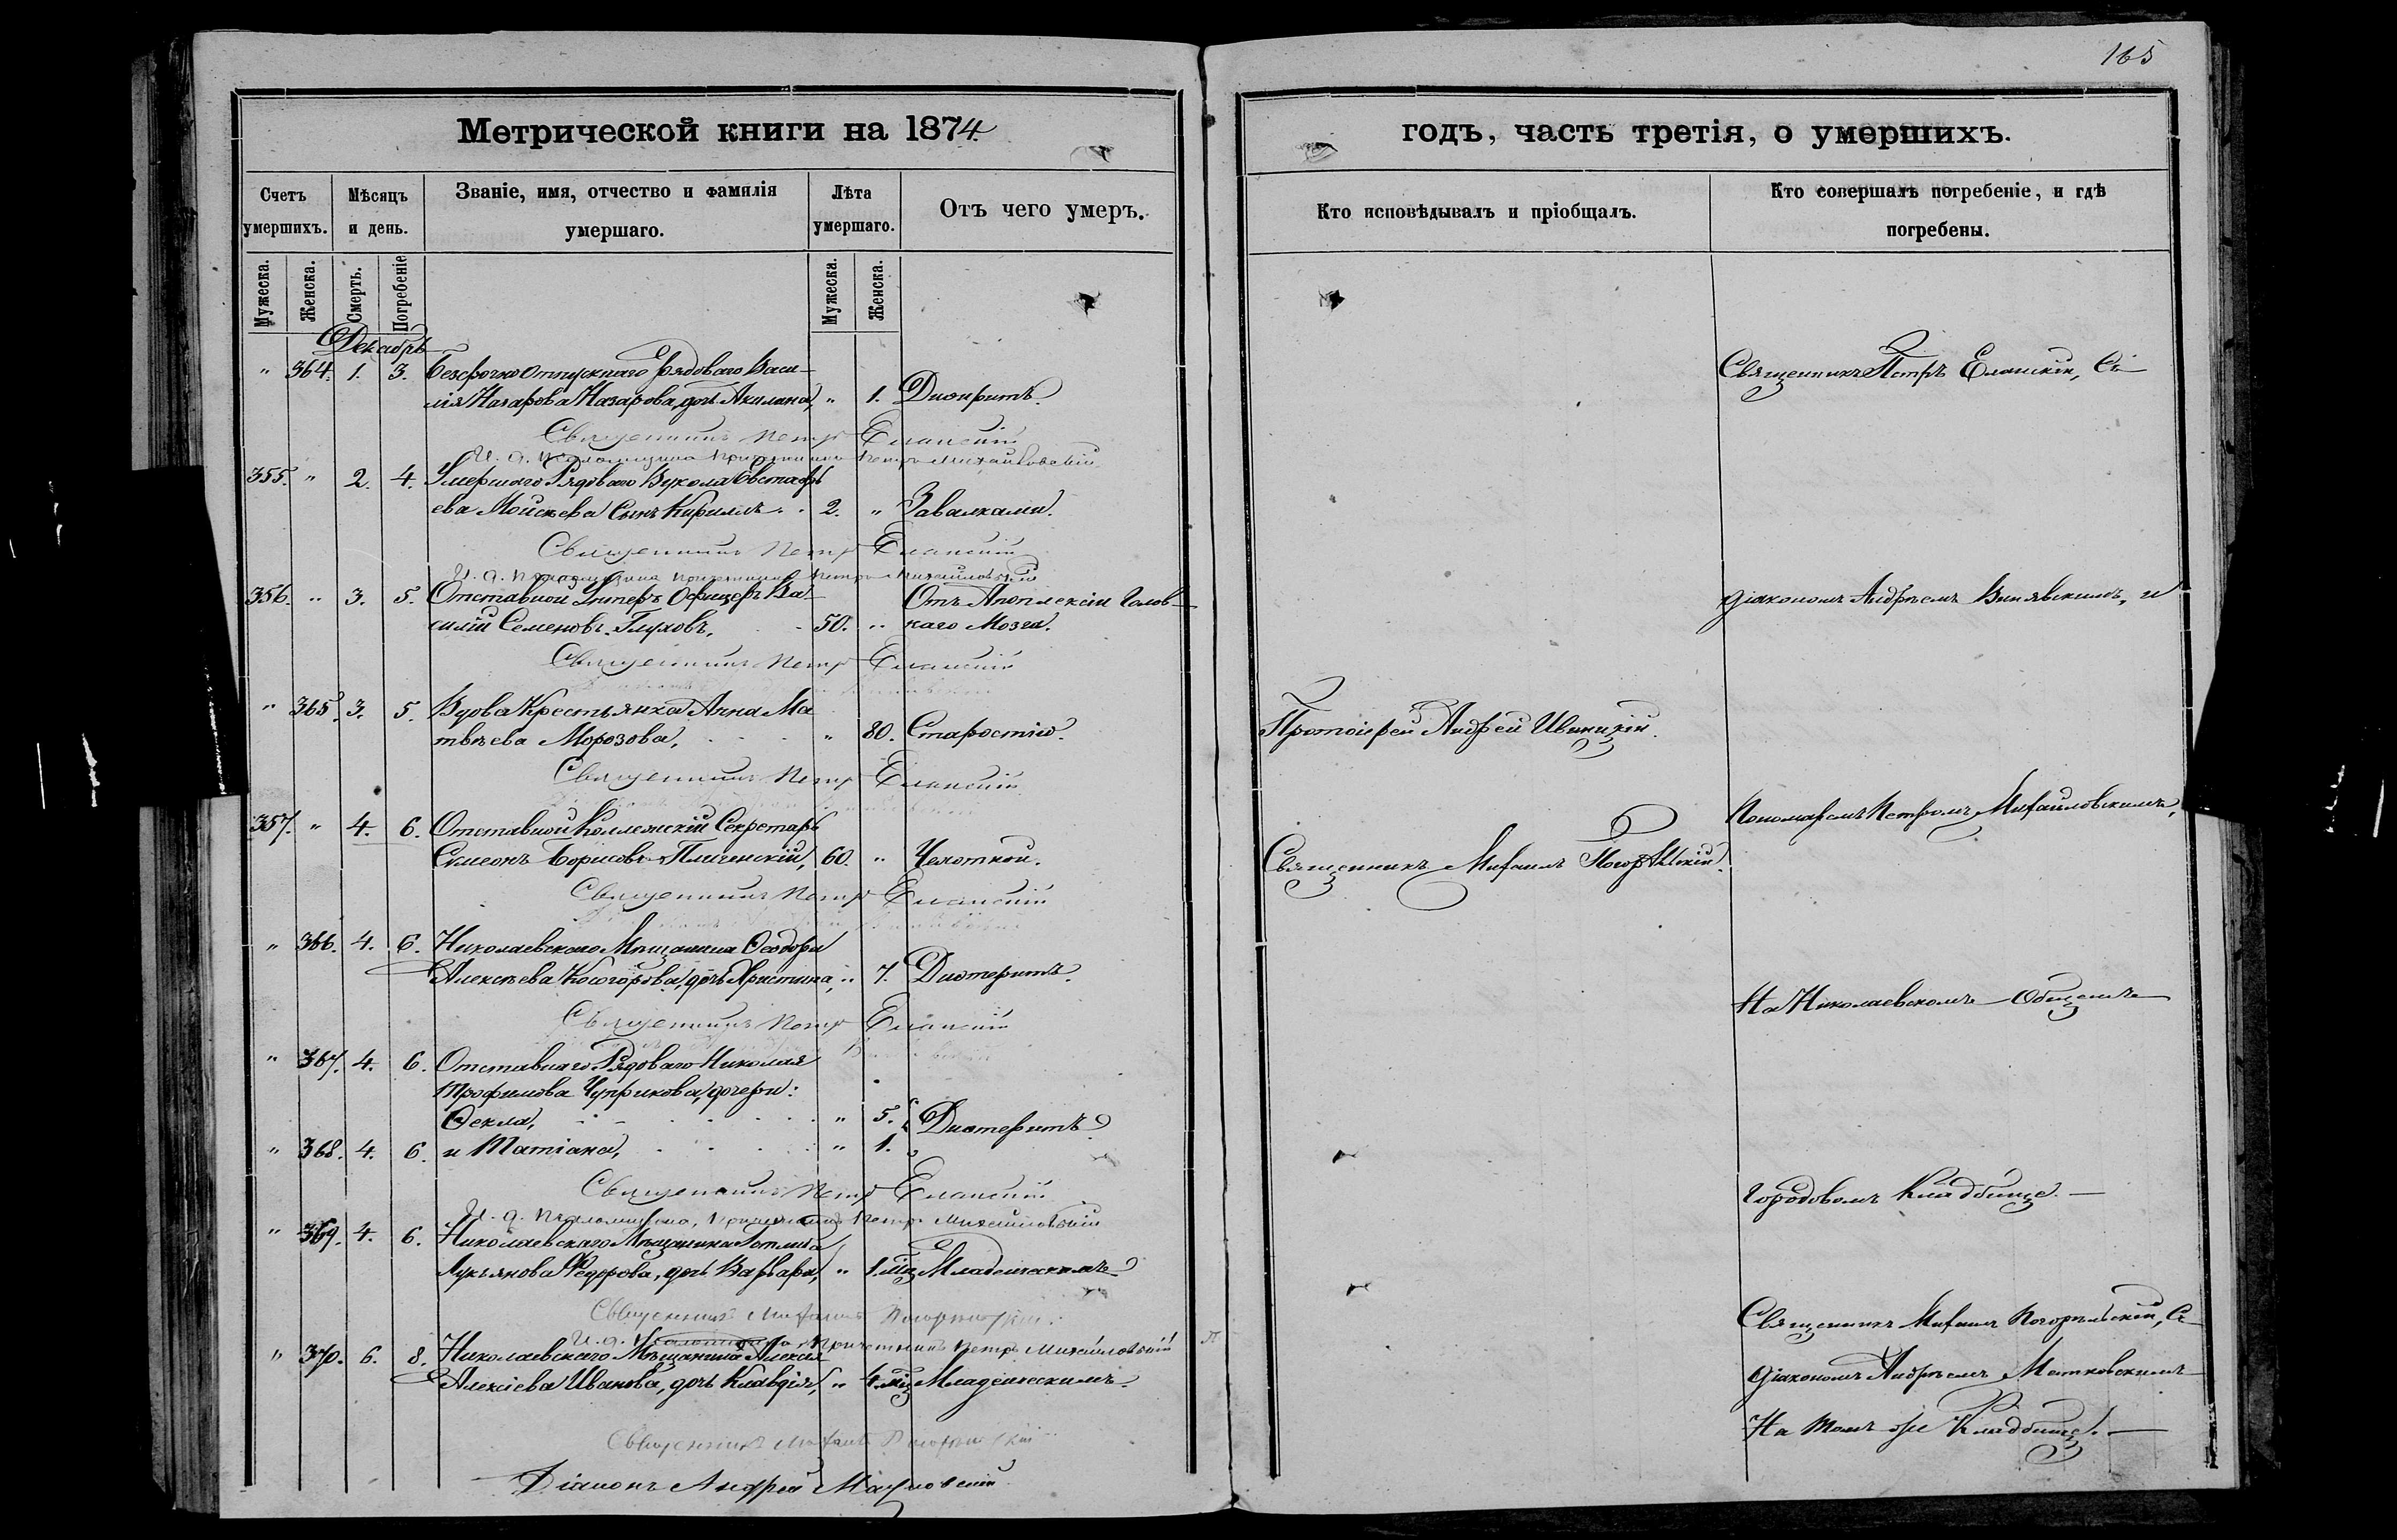 165
Метрической книги на 1874
годъ, часть третія, о умершихъ.
Счетъ умершихъ.
Мѣсяцъ и день.
Званіе, имя, отчество и фамилія умершаго.
Лѣта умершаго.
Отъ чего умеръ.
Кто исповѣдывалъ и пріобщалъ.
Кто совершалъ погребеніе, и гдѣ погребены.
Мужеска.
Женска.
Смерть.
Погребеніе
Мужеска.
Женска.
Декабрь
" 364. 1. 3. безсрочно отпускнаго Рядоваго Васи-
лія Назарова Назарова, дочь Акилина, " 1. Дифтеритъ.
Священникъ Петръ Еланскій
И. д. псаломщика причетникъ Петръ Михайловскій
355. " 2. 4. Умершаго Рядоваго Вукола Евстафь
ева Моисѣева сынъ Кириллъ 2. " Завалками.
Священникъ Петръ Еланскій
И. д. псаломщика причетникъ Петръ Михайловскій
356. " 3. 5. Отставной Унтеръ Офицеръ Ва-
силій Семеновъ Глуховъ, 50. " Отъ Апоплексіи Голов-
наго Мозга.
Священникъ Петръ Еланскій
" 365. 3. 5. Вдова Крестьянка Анна Ма
твѣева Морозова, " 80. Старостію.
Священникъ Петръ Еланскій
357. " 4. 6. Отставной Коллежскій Секретарь
Симеонъ Борисовъ 60. " Чахоткой.
Священникъ Петръ Еланскій
" 366. 4. 6. Николаевскаго Мѣщанина Ѳеодора
Алексѣева Косогорова, дочь Христина, " 7. Дифтеритъ.
Священникъ Петръ Еланскій
" 367. 4. 6. Отставнаго Рядоваго Николая
Трофимова Чуприкова, дочери:
Ѳекла, " 5. Дифтеритъ
" 368. 4. 6. и Татіана, " 1.
Священникъ Петръ Еланскій
И. д. псаломщика, причетникъ Петръ Михайловскій
" 369. 4. 6. Николаевскаго Мѣщанина
Лукьянова Федорова, дочь Варвара, " 1 мѣ Младенческимъ
Священникъ Михаилъ Погорѣльскій
И. д. псаломщика причетникъ Петръ Михайловскій
" 370. 6. 8. Николаевскаго Мѣщанина Алексія
Алексіева Иванова, дочь Клавдія, " 4 мѣ Младенческимъ.
Священникъ Михаилъ Погорѣльскій
Діаконъ Андрей
Протоіерей Андрей
Священникъ Михаилъ Погорѣльскій.
Священникъ Петръ Еланскій, съ
діакономъ Андреемъ и
Пономаремъ Петромъ Михайловскимъ,
На Николаевскомъ Общемъ
Городовомъ Кладбище.
Священникъ Михаилъ Погорѣльскій, съ
діакономъ Андреемъ
На томъ же Кладбище.